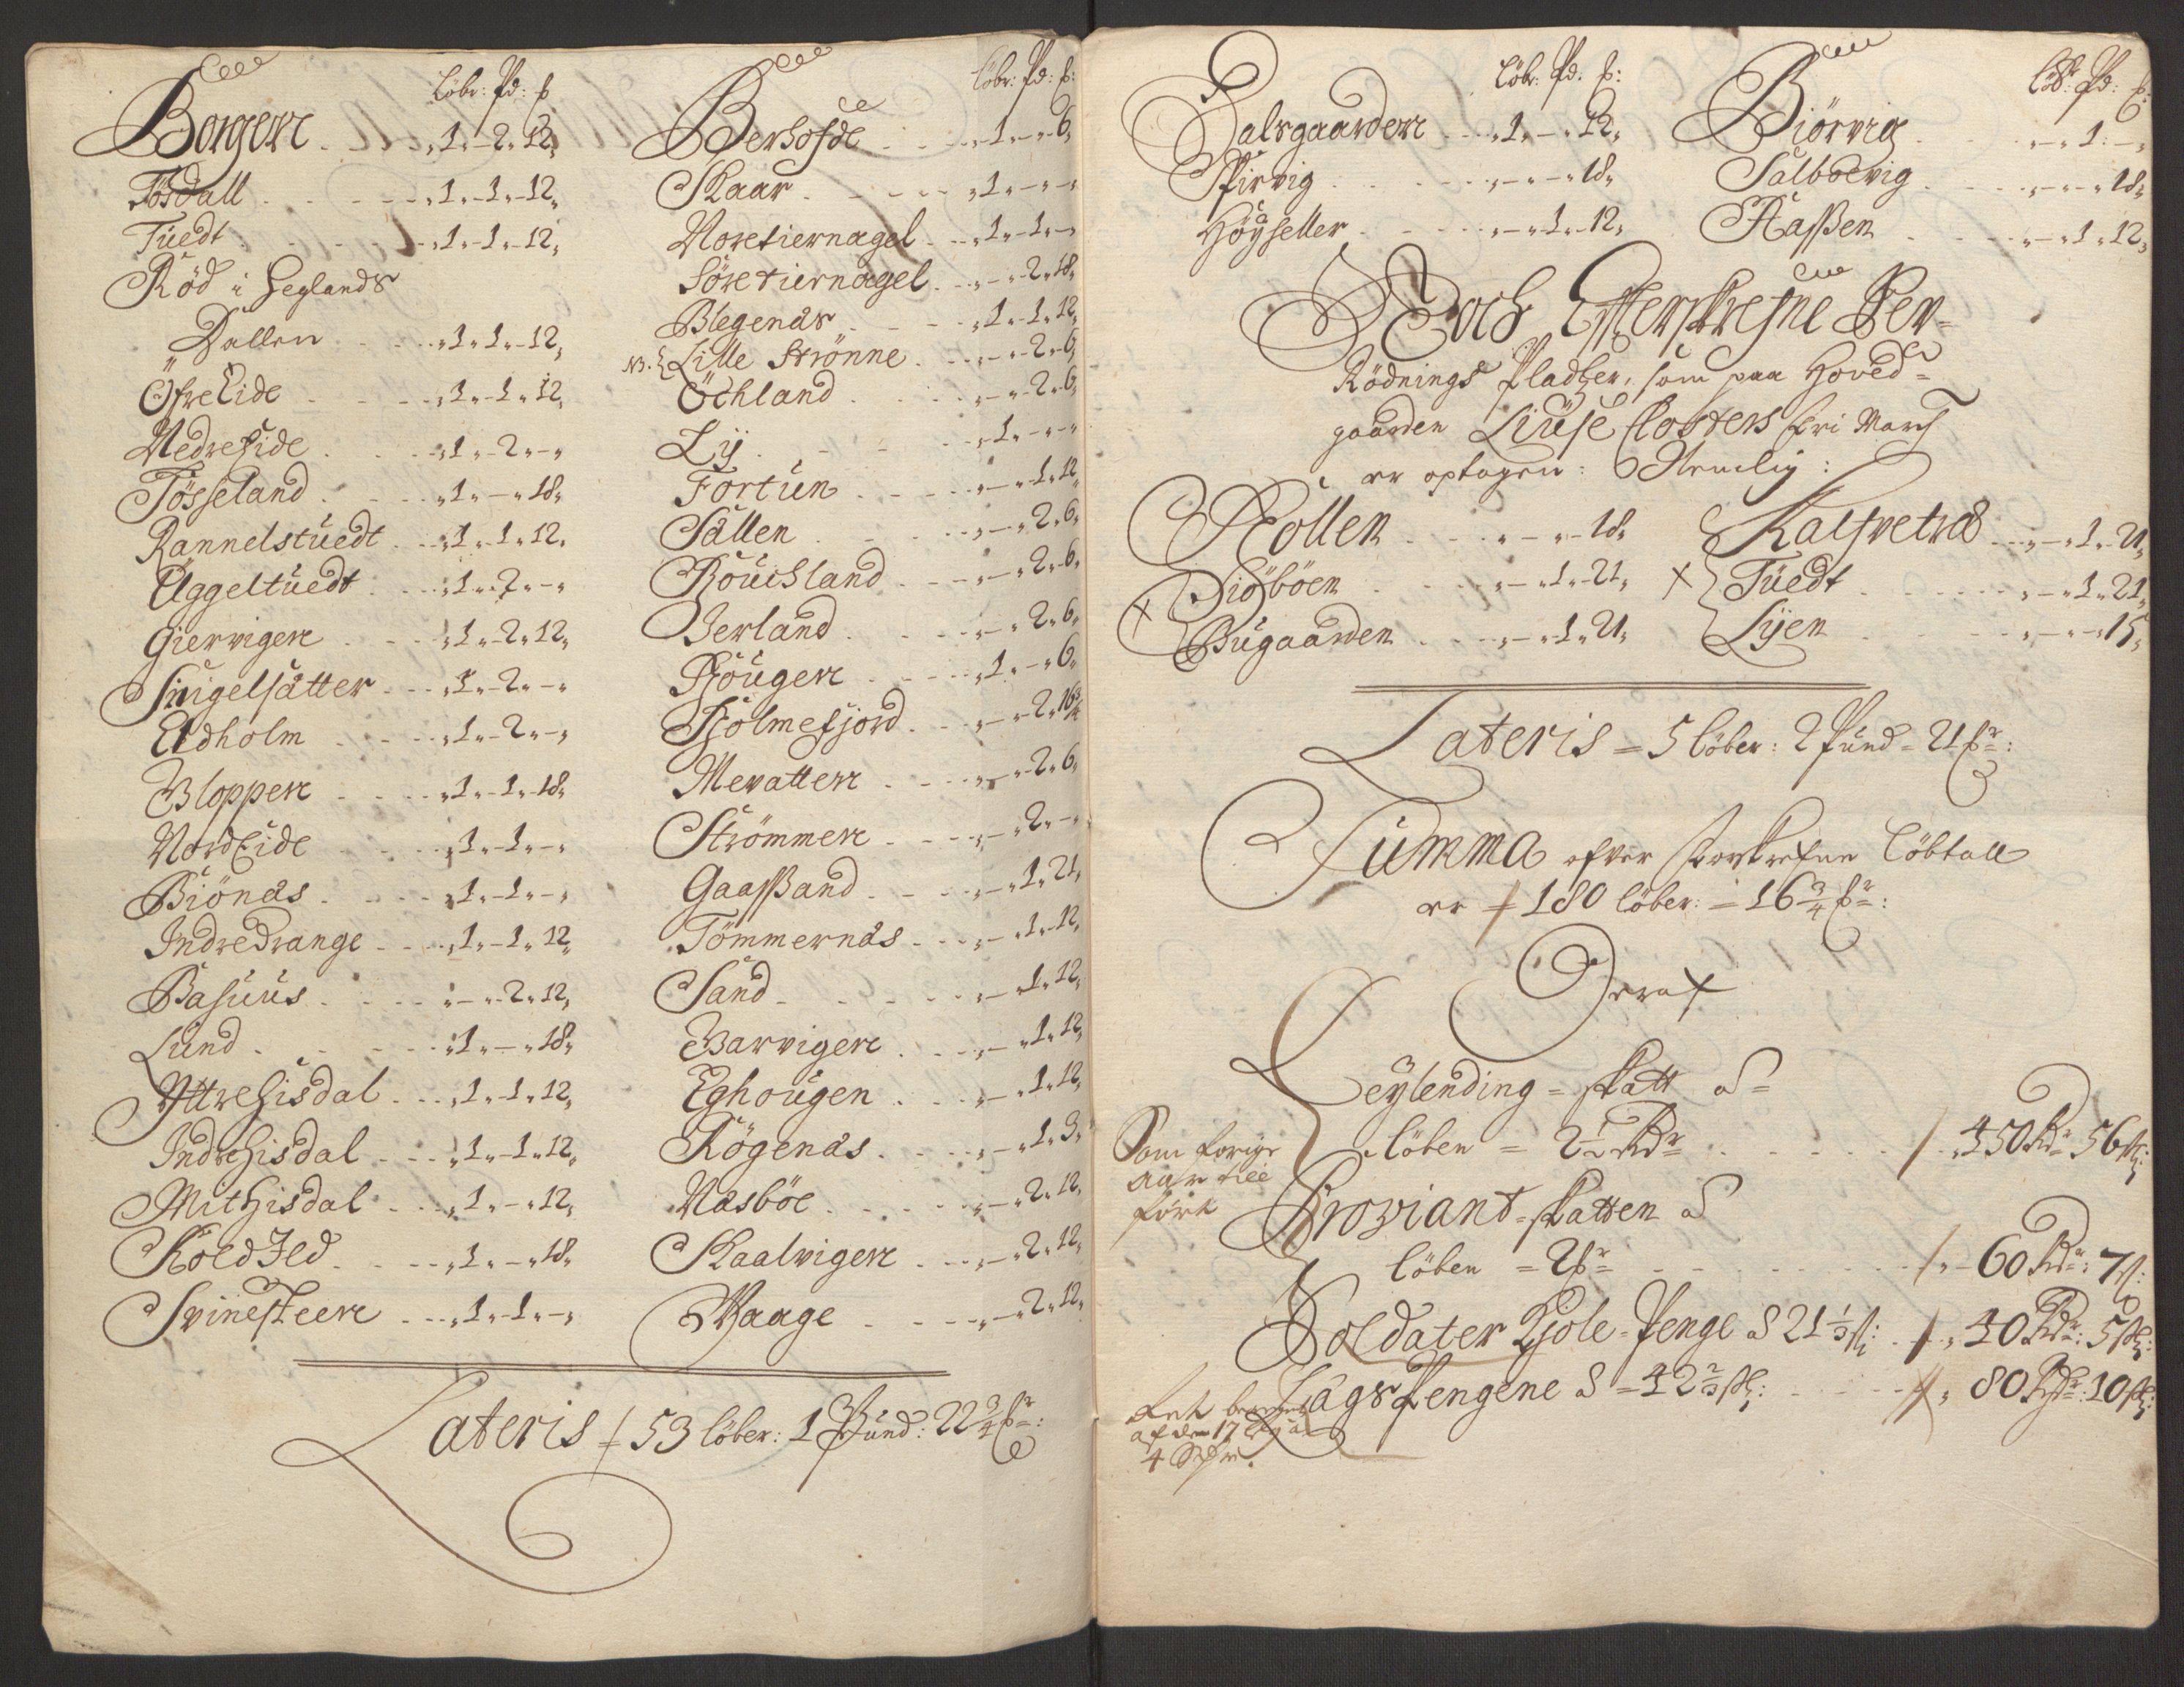 Löbr: Pd: ℔
Borgere . . . „1„-2„12„
Tösdall . . . „1„-1„-12„
Tuedt . . . „1„-1„-12„
Röd i Heglands
Dallen . . . „1„1„-12„
Öfre Eide . . . „1„-1„12„
Nedre Eide . . . „1„-2„-„
Tösseland . . . „1„-„18„
Rannelstuedt . . „1„-1„12„
Üggeltuedt . . „1„-2„-„
Giervigen . . . „1„-2„12„
Snigelsätter . . . „1„-2„-„
Eldholm . . . „1„-2„-„
Bloppere . . . „1„-1„18„
Nord Eide . . . „1„-1„-„
Biönäs . . . „1„-1„-„
Indre Drange . . . „1„-1„12„
Basuus . . . „-„2„12„
Lund . . . „1„-„18„
Yttre Gisdal . . . „1„-1„12„
Indre Gisdal . . . „1„-1„12„
Mit Gisdal . . . „1„-„12„
Kold Jld . . . „1„-„18„
Svinesteere . . . „1„-1„-„
Löbr: Pd: ℔:
Berhofde . . . „1„-„6„
Skaar . . . „1„-„-„
Noretiernagel . . „1„-1„-„
Söretiernagel . . „-„2„18„
Blegenäs . . . „1„-1„12„
NB. { Lille Strönne . . . „-„2„6„
Öchland . . . „-„2„6„
Lij . . . „1„-„-„
Fortun . . . „-„1„12„
Sällen . . . „-„2„6„
Röuchland . . . „-„2„6„
Berland . . . „-„2„6„
Höugere . . . „1„-„6„
Holmefjord . . . „-„2„16¾
Mevattere . . . „-„2„6„
Strömmere . . . „-„2„-„
Gaassand . . . „-„1„21„
Tömmernäs . . . „-„1„12„
Sand . . . „-„1„12„
Barvigere . . . „-„1„12„
Eghougen . . . „-„1„12„
Rögenäs . . . „-„1„3„
Näsböe . . . „-„2„12„
Skaalvigere . . . „-„2„12„
Waage . . . „-„2„12„
Lateris = 53 löber: 1 Pund: 22¾ ℔r:
Löbr: Pd. ℔:
Dalsgaardere . . . „1„-„12„
Spirvig . . . „-„-„18„
Höyseller . . . „-„1„12„
Löbr: Pd: ℔:
Biörvig . . . „-„1:-„
Salböevig . . . „-„-„18„
Hassen . . . „-„1„12„
Noch Efterskrefne Rer-
Rödnings Pladtzer, som paa Hoved-
gaarden Liuse Closters fri March
er optagen: Nemlig:
Kollen . . . „-„-„18„
Siöböen . . . „-„1„21„
Bugaarden . . . „-„1„21„
Kalfvetræ . . . „-„1„21„
Tuedt . . . „-„1„21„
Lijen . . . „-„-„15„
Lateris = 5 löber: 2 Pund = 21 ℔r:
Summa ofver forskrefne Löbtall
er = 180 löber: = 16¾ ℔r:
Deraf
Leylending-skatt a
löben = 2½ Rdr . . . 450 Rdr 56 sk:
Som forige
aar till
ført
Proviant-skatten a
löben = 2 ℔r . . . 60 Rdr: 7 sk:
Soldater Kjole-Penge a 21⅓ sk: . . 40 Rdr: 5 sk:
Lägs Pengene a = 42⅔ sk: . . . 80 Rdr: 10 sk:
af den 17
4